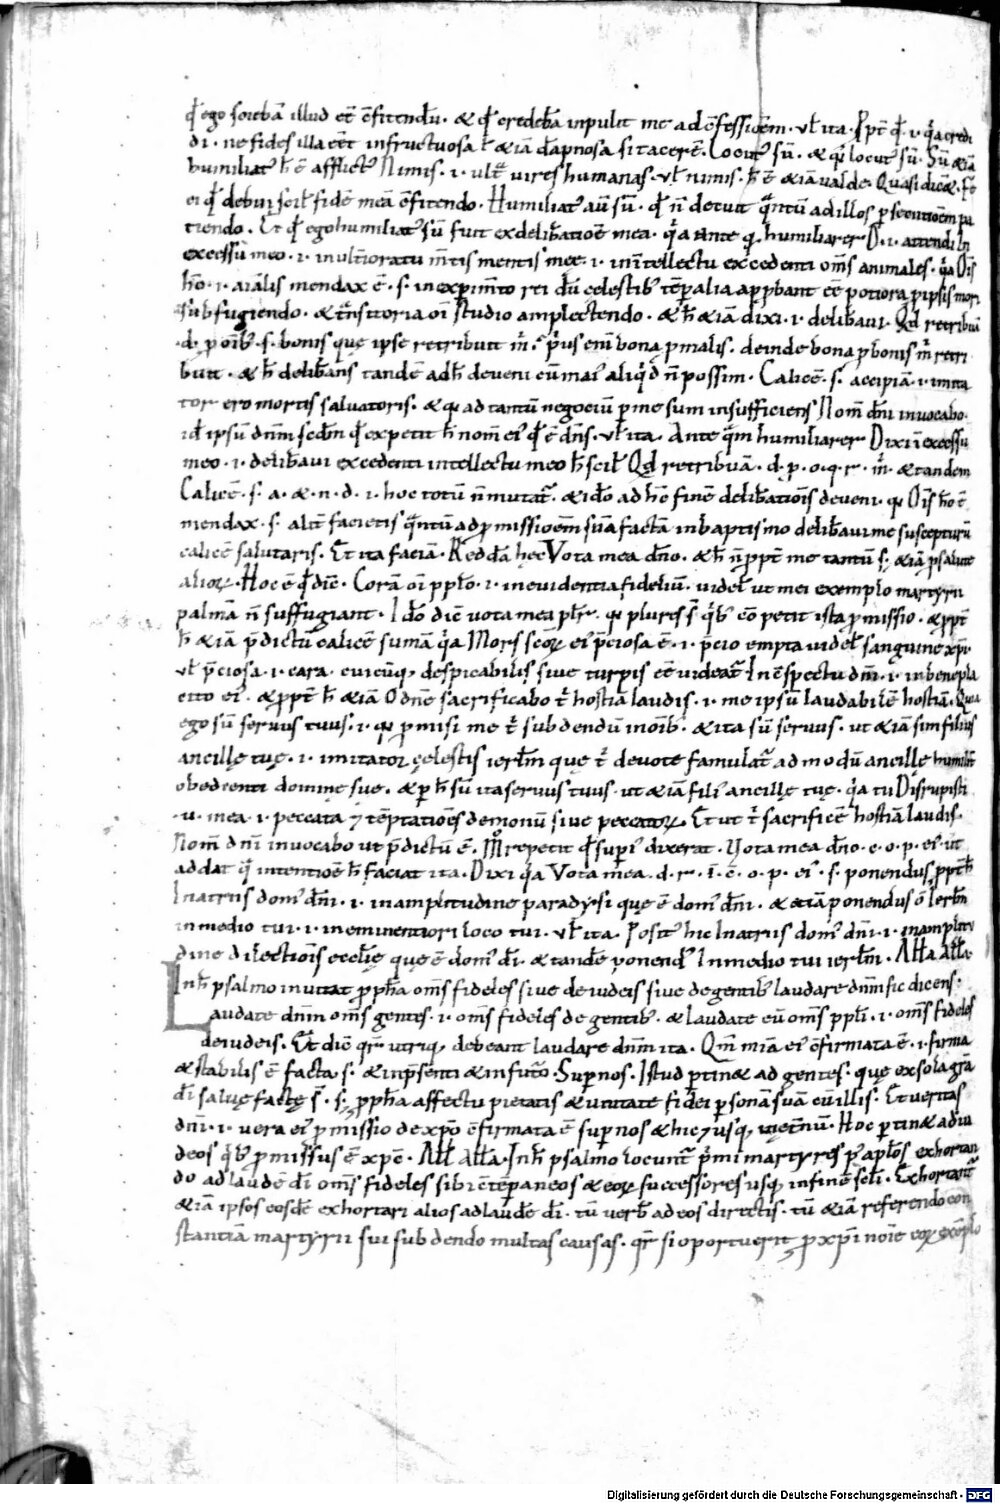 qđ ego sciebā illud eē c̄fitendū. & qđ credebā inpulit me ad c̄fessionē. ul̄ ita. Ppt̄ qđ. i. q̄a credi
di. ne fides illa eēt infructuosa ł &iā dāpnosa si tacerē. Locutꝰ sū. & qđ locutꝰ sū. Sū &iā
humiliatꝰ h̄ ē afflictꝰ Nimis. i. ult̄ uires humanas. ul̄ nimis. h̄ ē &iā ualde. Quasi dic&.
ei qđ debui scil̄ fidē meā c̄fitendo. Humiliatꝰ aū sū. qđ n̄ decuit q̄ntū ad illos ꝑsecutionē pa
tiendo. Et qđ ego humiliatꝰ sū fuit ex deliba̅tiōe mea. q̄a ante q̄ humiliarer D. i. attendi In
excessū meo. i. in ult̄ioratū m̄tis mentis mee. i. in ītellectu excedenti om̄s animales. q̄a Ois
hō. i. aīalis mendax ē. s. in expim̄to rei dū celestibꝰ tēꝑalia app̄bant eē potiora p ipsis mori
subfugiendo. & t̄nsitoria oī studio amplectendo. & h̄ &iā dixi. i. delibaui. Qd retribuā
.d. ꝓ oībꝰ. s. bonis quę ipse retribuit m̄. p̄us enī bona p malis. deinde bona ꝓ bonis m̄ retri
buit. & h̄ delibans tandē ad h̄ deueni cū mai aliqd n̄ possim. Calicē. s. accipiā. i. imita
tor ero mortis saluatoris. & qa ad tantū negociū p me sum insufficiens Nom̄ dn̄i inuocabo.
id ipsū dn̄m scdm qđ expetit h̄ nom̄ eiꝰ qđ ē dn̄s. ul̄ ita. Ante q̄m humiliarer Dixi ī excessu
meo. i. delibaui excedenti intellectu meo h̄ scil̄ Qd retribuā. d. p. o. q. r. m̄. & tandem
Calicē. s. a. & n. d. i. hoc totū n̄ mutat̄. & idō ad h̄c finē delibationis deueni. qa Ois hō ē
mendax. s. alit̄ facietis q̄ntū ad ꝓmissionē suā factā in baptismo delibaui me suscepturū
calicē salutaris. Et ita faciā. Reddā hec Vota mea dn̄o. & h̄ n̄ ppt̄ me tantū s; &iā p salute
alioꝝ. Hoc ē qđ dic̄. Corā oī pplo. i. in euidentia fideliū. uidel̄ ut mei exemplo martyrii
palmā n̄ suffugiant. Idō dic̄ uota mea plr̄. qa plures s̄ qbꝰ cō petit ista ꝓmissio. & ppt̄
h̄ &iā p̄dictū calicē sumā q̄a Mors sc̄oꝝ eiꝰ p̄ciosa ē. i. p̄cio empta uidel̄ sanguine xp̄i
ul̄ p̄ciosa. i. cara. cuicūq; despicabilis siue turpis eē uideat̄ In c̄spectu dn̄i. i. in benepla
cito eiꝰ. & ppt̄ h̄ &iā O dn̄e sacrificabo t̄ hostiā laudis. i. me ipsū laudabilē hostiā. Quia
ego sū seruus tuus. i. qa ꝓmisi me t̄ subdendū in oībꝰ. & ita sū seruus. ut &iā sim filius
ancillę tuę. i. imitator cęlestis ierl̄m quę t̄ deuote famulat̄ ad modū ancillę humilit̄
obedienti dominę suę. & ꝑ h̄ sū ita seruus tuus. ut &iā filiꝰ ancillę tuę. q̄a tu Disrupisti
.u. mea. i. peccata ⁊ tēptationes demonū siue peccatoꝝ. Et ut t̄ sacrificē hostiā laudis.
Nom̄ dn̄i inuocabo ut p̄dictū ē. M̊ repetit qđ supi dixerat. Vota mea dn̄o. c. o. p. eiꝰ. ut
addat q̄ intentione h̄ faciat ita. Dixi q̄a Vota mea. d. r. ī. c̄. o. p. eiꝰ. s. ponendus ppt̄ h̄
In atriis domꝰ dn̄i. i. in amplitudine paradysi quę ē domꝰ dn̄i. & etiā ponendus ō Ierl̄m
in medio tui. i. in eminentiori loco tui. ul̄ ita. Positꝰ hic In atriis domꝰ dn̄i. i. in amplitu
dine dilectionis eccl̄ię quę ē domꝰ dī. & tandē ponendꝰ In medio tui ierl̄m. All̄a all̄a.
In h̄ psalmo inuitat ꝓph̄a om̄s fideles siue de iudeis siue de gentibꝰ laudare dn̄m sic dicens.
Laudate dn̄m om̄s gentes. i. om̄s fideles de gentibꝰ. & laudate eū om̄s ppl̄i. i. om̄s fideles
de iudeis. Et dic̄ qr̄ utriq; debeant laudare dn̄m ita. Qm̄ mīa eiꝰ c̄firmata ē. i. firma
& stabilis ē facta. s. & in p̄senti & in futo. Supnos. Istud ꝑtin& ad gentes. quę ex sola gr̄a
dī saluę factę s̄. s. ꝓph̄a affectu pietatis & unitate fidei ꝑsonā suā cū illis. Et ueritas
dn̄i. i. uera eiꝰ ꝓmissio de xp̄o c̄firmata ē supnos & hic ⁊ usq; in et̄nū. Hoc ꝑtin& ad iu
deos qbꝰ ꝓmissus ē xp̄c. All̄ all̄a. In h̄ psalmo locunt̄ p̄mi martyres p̄t ap̄los exhortan
do ad laudē dī om̄s fideles sibi c̄tēꝑaneos & eoꝝ successores usq; in finē scl̄i. Exhortant̄
&iā ipsos eosdē exhortari alios ad laudē dī. tū uerbꝰ ad eos directis. tū &iā referendo con
stantiā martyrii sui subdendo multas causas. qr̄ si oportuerit ꝓ xp̄i noīe eoꝝ exēplo